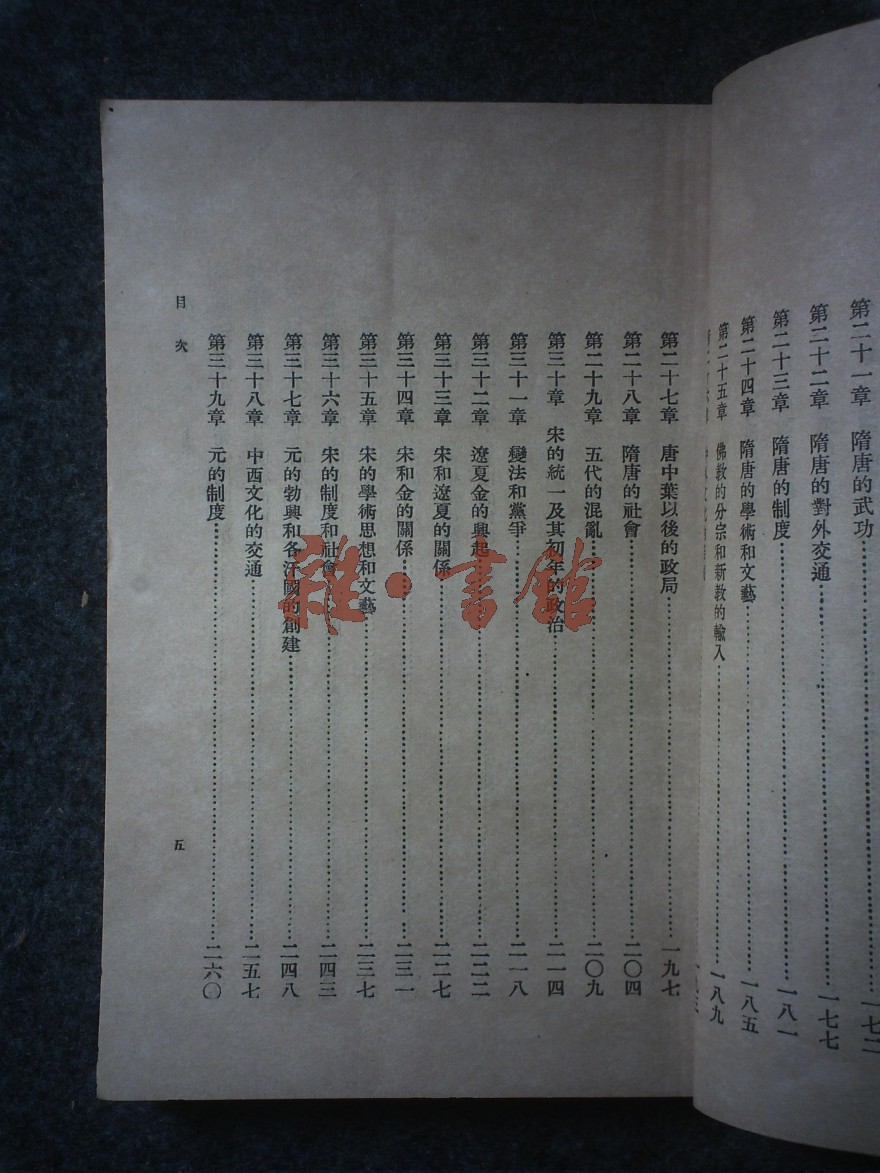 第二十一章　隋唐的武功……一七二
第二十二章　隋唐的對外交通……一七七
第二十三章　隋唐的制度……一八一
第二十四章　隋唐的學術和文藝……一八五
第二十五章　佛教的分宗和新教的輸入……一八九
第二十七章　唐中葉以後的政局……一九七
第二十八章　隋唐的社會……二〇四
第二十九章　五代的混亂……二〇九
第三十章　宋的統一及其初年的政治……二一四
第三十一章　變法和黨爭……二一八
第三十二章　遼夏金的興起……二二二
第三十三章　宋和遼夏的關係……二二七
第三十四章　宋和金的關係……二三一
第三十五章　宋的學術思想和文藝……二三七
第三十六章　宋的制度和社會……二四三
第三十七章　元的勃興和各汗國的創建……二四八
第三十八章　中西文化的交通……二五七
第三十九章　元的制度……二六〇
目次
五
雜·書館